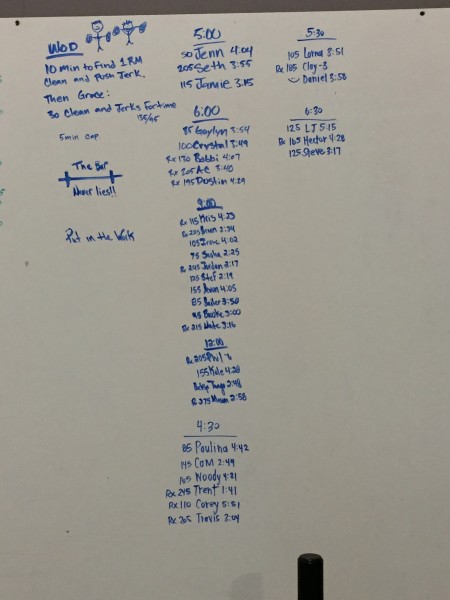 WOD
10 min to Find 1RM
Clean and Push Jerk.
Then Grace:
30 Clean and Jerks For time
135/95
5 min cap
The Bar
Never lies!!
Put in the Work
5:00
50 Jenn 4:04
205 Seth 3:55
115 Jamie 3:15
6:00
85 Gaylyn 3:54
100 Crystal 3:49
Rx 130 Bobbi 4:07
Rx 205 AC 3:40
Rx 195 Dustin 4:29
9:00
Rx 115 Kris 4:23
4:02
95 Sasha 2:25
Rx 245 Jordan 2:17
125 Stef 2:19
155 4:05
85 3:50
3:00
Rx 215 Nate 3:16
12:00
Rx 205 Phil
155 Kyle 4:28
2:48
Rx 275 2:58
4:30
85 Paulina 4:42
145 Com 2:49
165 Woody 4:21
Rx 245 Trent 1:41
Rx 110 Corey 5:51
Rx 265 Travis 2:04
5:30
105 Lorna 3:51
Rx 185 Clay -3
Daniel 3:58
6:30
125 LJ 5:15
Rx 165 Hector 4:28
125 Steve 3:17